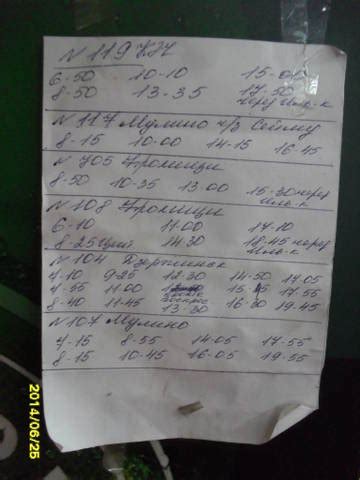 N 119 КТЧ
6-50 10-10 15-05
8-50 13-35 17-50
через Иль-к
N 117 Мулино ч/з Сейму
8-15 10-00 14-15 16-45
N 705 Фролищи
8-50 10-35 13-00 15-30 через
Иль-к
N 108 Фролищи
6-10 11-00 17-10
8-25 14-30 18-45 через
Иль-к
N 104 Дзержинск
7-10 9-25 12-30 14-50 17-05
7-55 11-00 15-45 17-55
8-40 11-45 воскрес 16-30 19-45
13-30
N 107 Мулино
7-15 8-55 14-05 17-55
8-15 10-45 16-05 19-55
2014/06/25